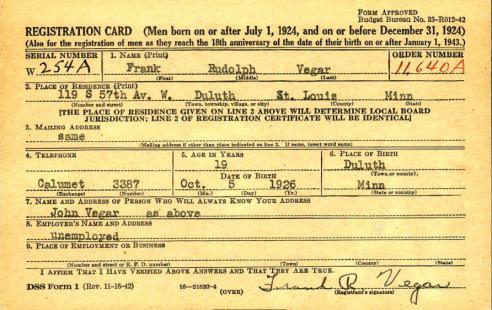 FORM APPROVED
Budget Bureau No. 33-R012-42
REGISTRATION CARD (Men born on or after July 1, 1924, and on or before December 31, 1924)
(Also for the registration of men as they reach the 18th anniversary of the date of their birth on or after January 1, 1943.)
SERIAL NUMBER 1. NAME (Print) ORDER NUMBER
W 254A Frank Rudolph Vegar 11,640A
(First) (Middle) (Last)
2. PLACE OF RESIDENCE (Print)
119 S 57th Av. W. Duluth St. Louis Minn
(Number and street) (Town, township, village, or city) (County) (State)
[THE PLACE OF RESIDENCE GIVEN ON LINE 2 ABOVE WILL DETERMINE LOCAL BOARD
JURISDICTION; LINE 2 OF REGISTRATION CERTIFICATE WILL BE IDENTICAL]
3. MAILING ADDRESS
same
(Mailing address if other than place indicated on line 2. If same, insert word same)
4. TELEPHONE 5. AGE IN YEARS 6. PLACE OF BIRTH
19 Duluth
DATE OF BIRTH (Town or county)
Calumet 3387 Oct. 5 1926 Minn
(Exchange) (Number) (Mo.) (Day) (Yr.) (State or country)
7. NAME AND ADDRESS OF PERSON WHO WILL ALWAYS KNOW YOUR ADDRESS
John Vegar as above
8. EMPLOYER'S NAME AND ADDRESS
unemployed
9. PLACE OF EMPLOYMENT OR BUSINESS
(Number and street or R. F. D. number) (Town) (County) (State)
I AFFIRM THAT I HAVE VERIFIED ABOVE ANSWERS AND THAT THEY ARE TRUE.
DSS Form 1 (Rev. 11-16-42) 16—21630-4 (OVER) Frank R. Vegar
(Registrant's signature)